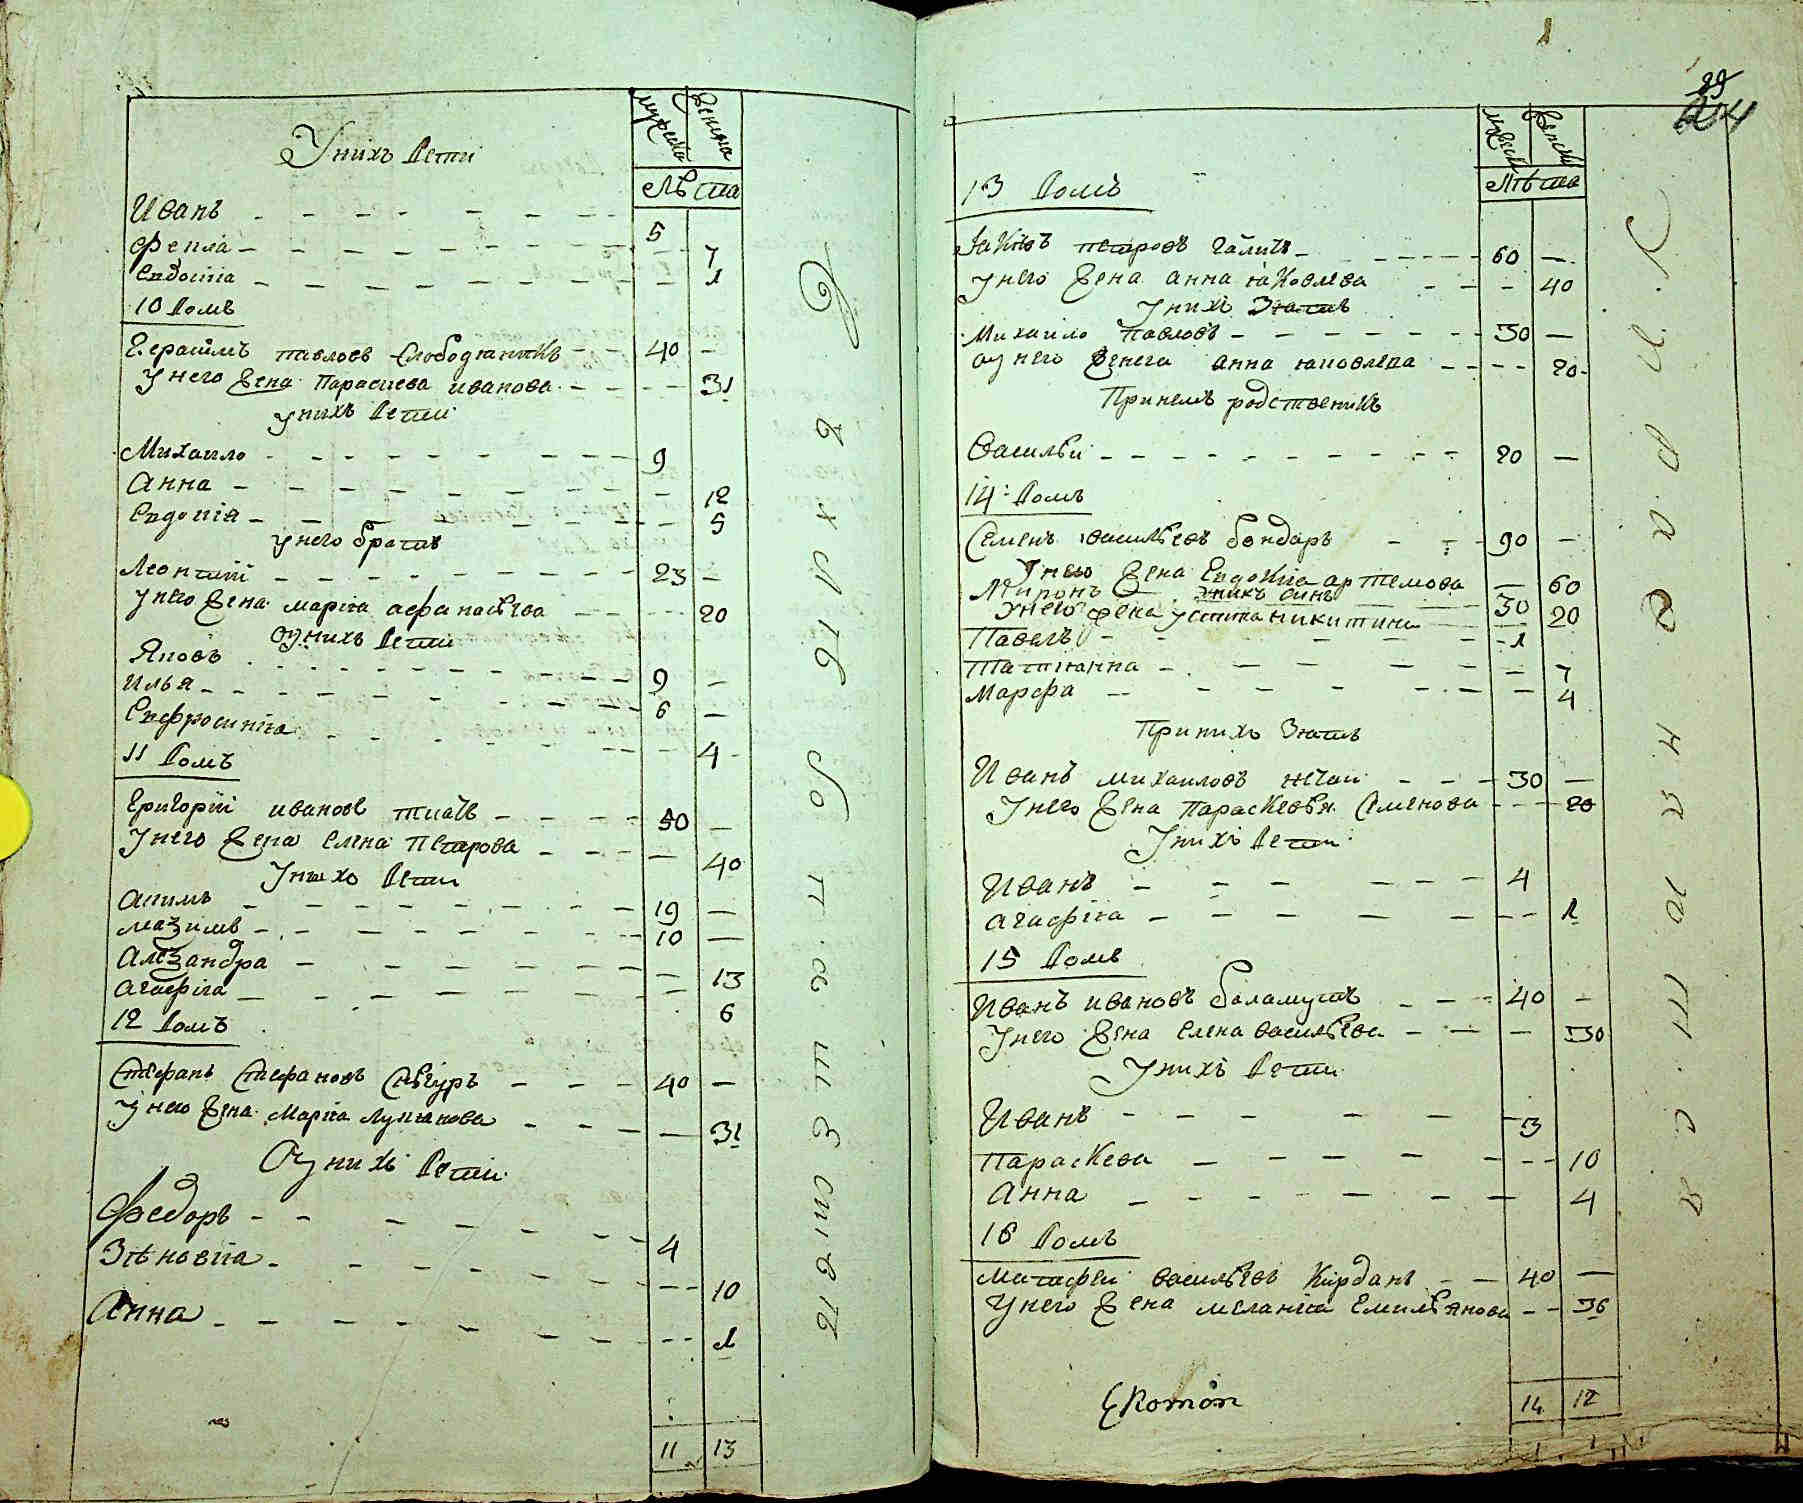 мужеска женска
Унихъ Дети
Лѣта
Иванъ 5
Фекла 7
Евдокіа 1
10 Домъ
Герасимъ павловъ Слободяникъ 40
Унего Жена Параскева иванова 31
унихъ Дети
Михаило 9
Анна 12
Евдокія 5
унего братъ
Леонтий 23
Унего Жена маріа афанасѣва 20
Оунихъ Дети
Яковъ 9
Илья 6
Евфросиніа 4
11 Домъ
Григорій ивановъ 50
Унего Жена Елена Петрова 40
Унихъ Дети
Акимъ 19
Маѯимъ 10
Алеѯандра 13
Агафіа 6
12 Домъ
Стефанъ Стефановъ Снѣгуръ 40
Унего Жена Маріа Лукіанова 31
Оунихъ Дети
Федоръ 4
Зѣновіа 10
Анна 1
11 13
В ыхлѣбопашествѣ
89
мужеска женска
Лѣта
13 Домъ
петровъ 60
Унего Жена анна іаковлева 40
Унихъ Зіать
Михаило Павловъ 30
оунего Женега анна іаковлева 20
Принемъ родственикъ
Василѣи 20
14 Домъ
Семенъ василѣевъ бондаръ 90
Унего Жена Евдокіа артемова 60
Миронъ Унихъ синъ 30
Унего жена устина никитина 20
Павелъ 1
Татіанна 7
Марфа 4
Принихъ Зіать
Иванъ михаиловъ 30
Унего Жена Параскевѣя Семенова 20
Унихъ Дети
Иванъ 4
Агафіа 1
15 Домъ
Иванъ ивановъ баламутъ 40
Унего Жена елена василѣева 30
Унихъ Дети
Иванъ 3
Параскева 10
Анна 4
16 Домъ
Матфеи василѣевъ Кирданъ 40
Унего Жена меланіа Емилѣянова 36
14 12
Упражняютса